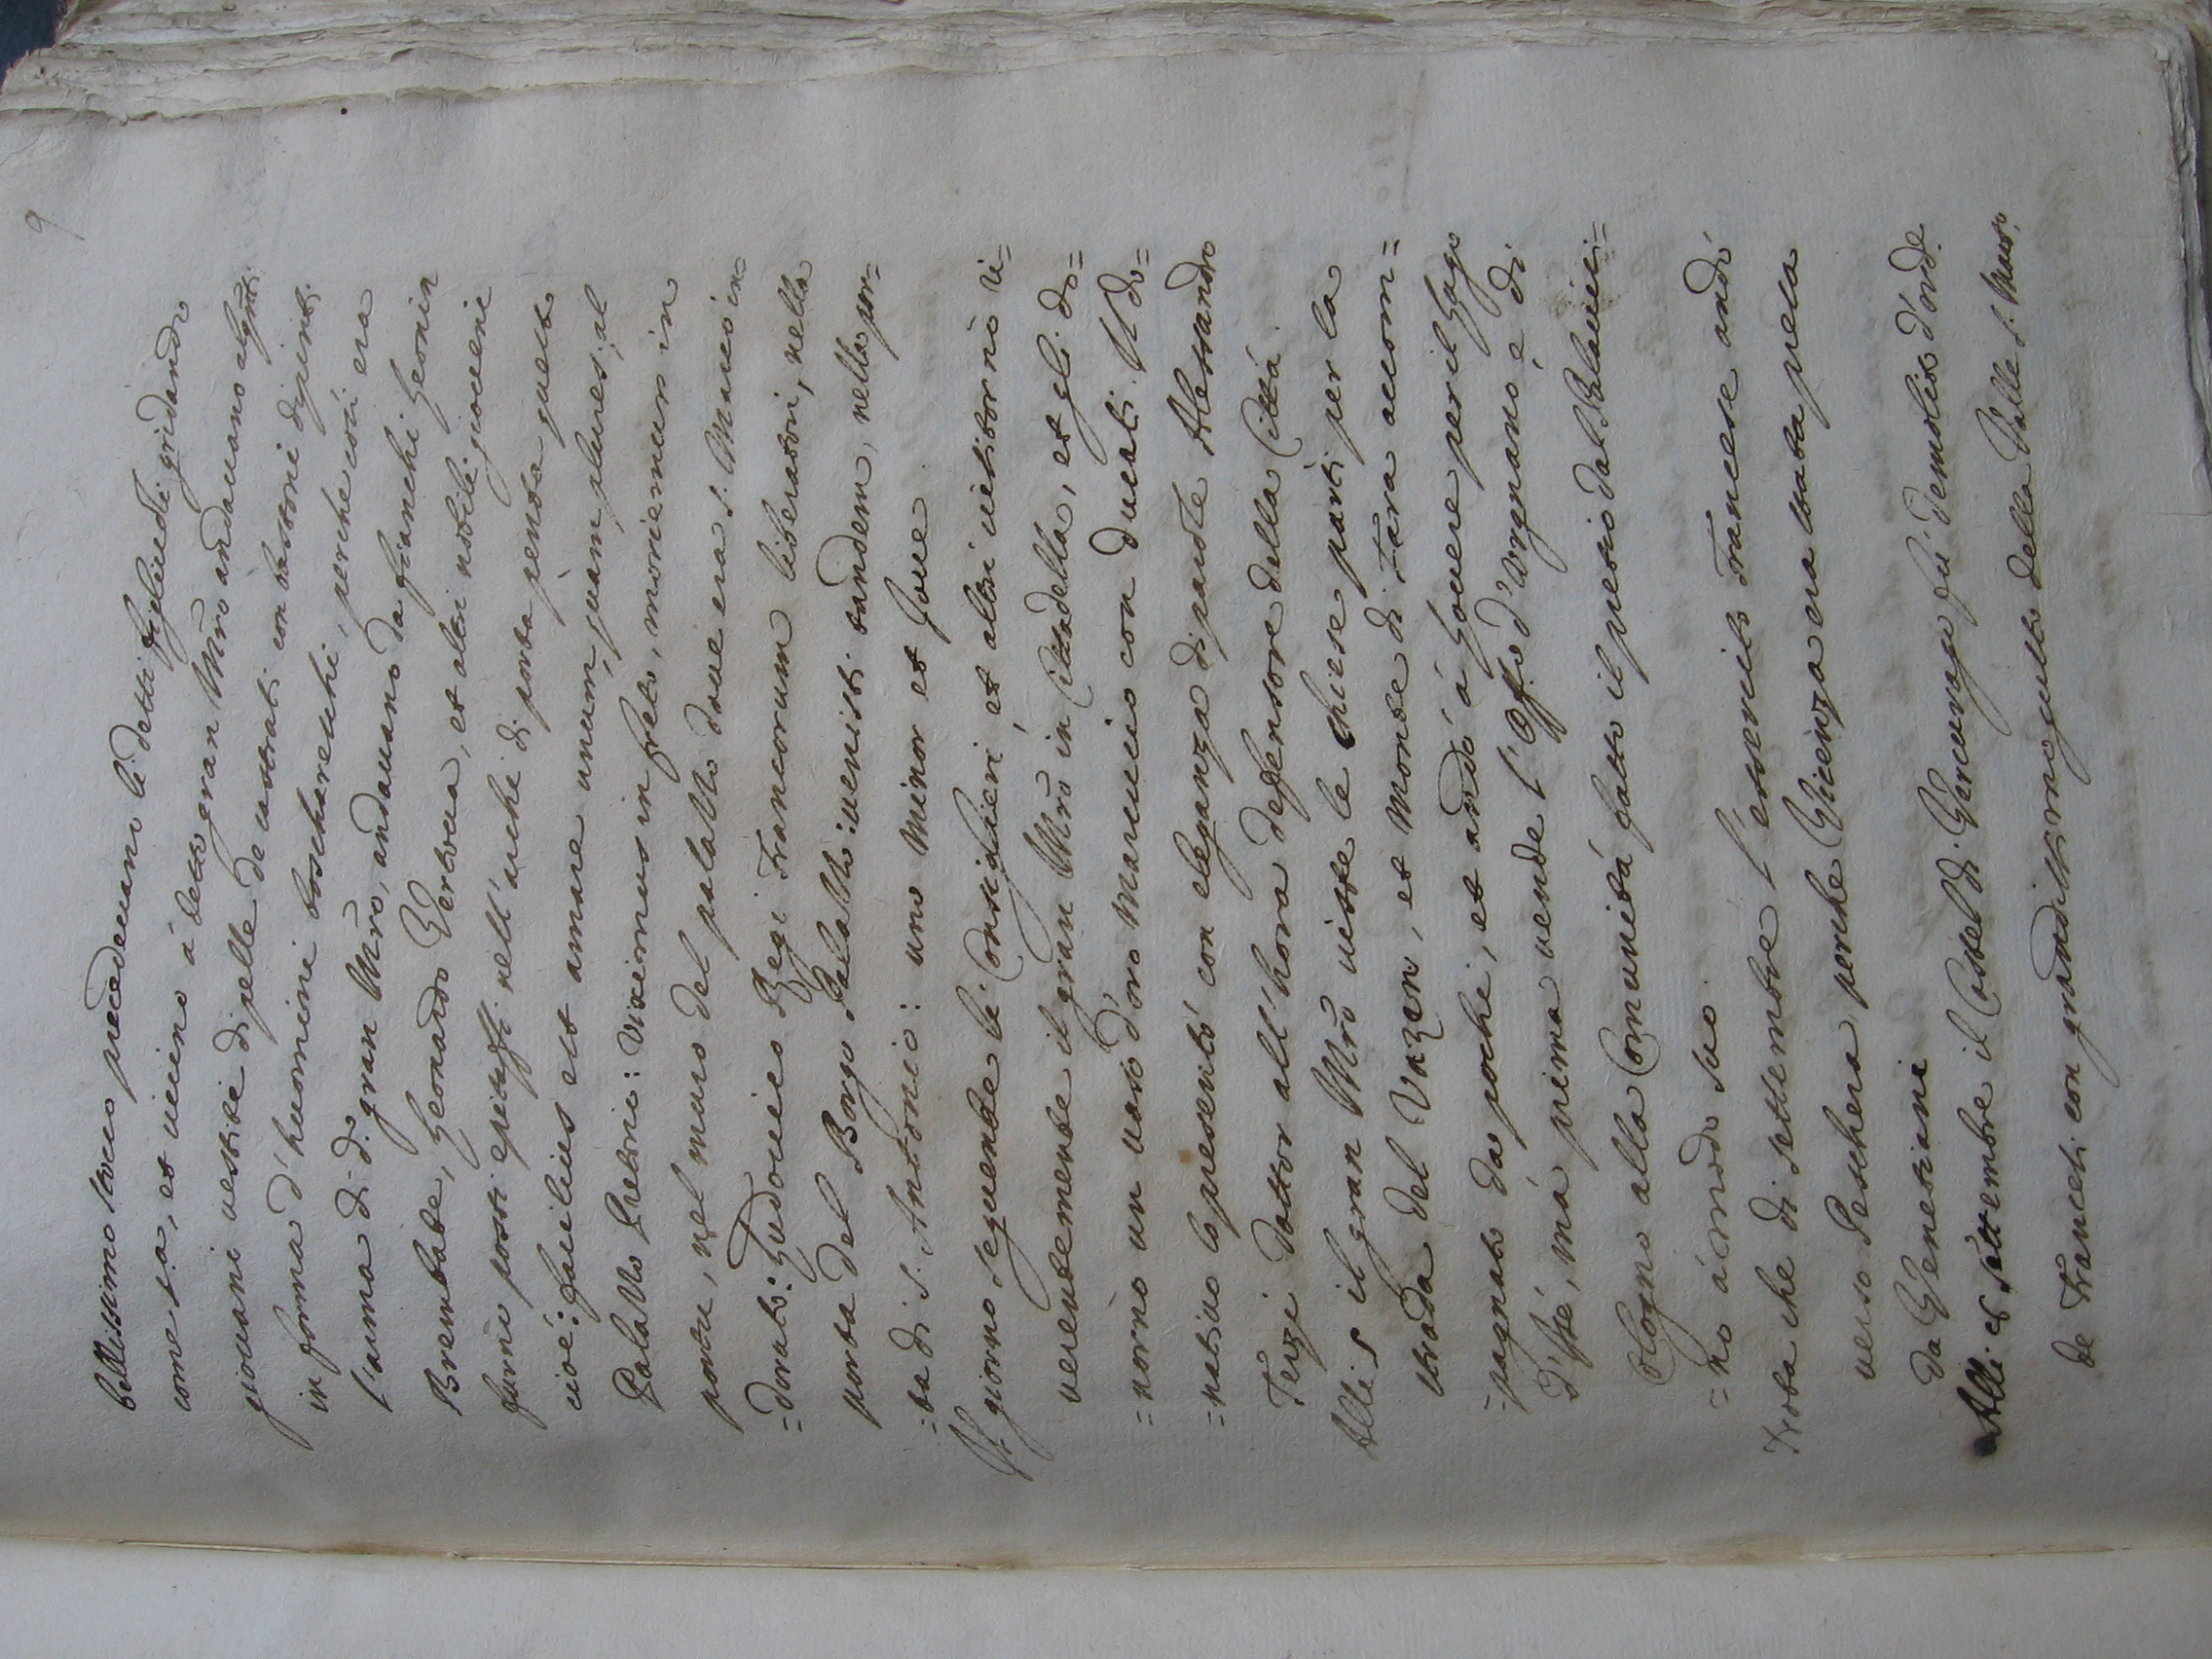 9
bellissimo stocco precedevano li detti figliuoli gridando
come sa, et vicino à detto gran Mr̃o andavano alquti
giovani vestite di pelle de castrati con bastoni dipinti
in forma d'huomini boscharecchi, perche così era
l'arma di d.o gran Mr̃o, andavano da fianchi Leonin
Brembate, Leonardo Vertova, et altri nobili giovani
furno posti epitaffi nell'arche di porta penta questo
cioè: facilius est amare unum, quam plures; al
Palatto Pretorio: Viximus in freto, moriemur in
portu, nel muro del palatto dove era S. Marco in=
=dorato: Ludovico Regi Francorum liberatori, nella
porta del Borgo Palatto: venisti tandem, nella por=
=ta di S. Antonio: uno minor et Jove
Il giorno seguente li Consiglieri, et altri visitorno ri=
verentemente il gran Mr̃o in Cittadella, et gli do=
=norno un vaso d'oro Marcuccio con ducati. Il do=
=nativo lo presentò con eleganza di parole Alessandro
Terzi Dottor all'hora deffensore della Città.
Alli 5 il gran Mr̃o visste le Chiese partì per la
strada del Vazen, et Monte di Fara accom=
=pagnato da pochi, et andò à Lovere per il Lago
d'Isè, mà prima vende l'Off.o d'Vorgnano, e di
Cologno alla Comunità fatto il presio dal Palavici=
=no à modo suo.
Trota che di settembre l'essercito Francese andò
verso Peschera perche Vicenza era stata presa
da Venetiani
Alli 28 Settembre il Castel di Vercurago fù demolito d'orde.
de Francesi con grandissimo gusto della Valle S. Mart.